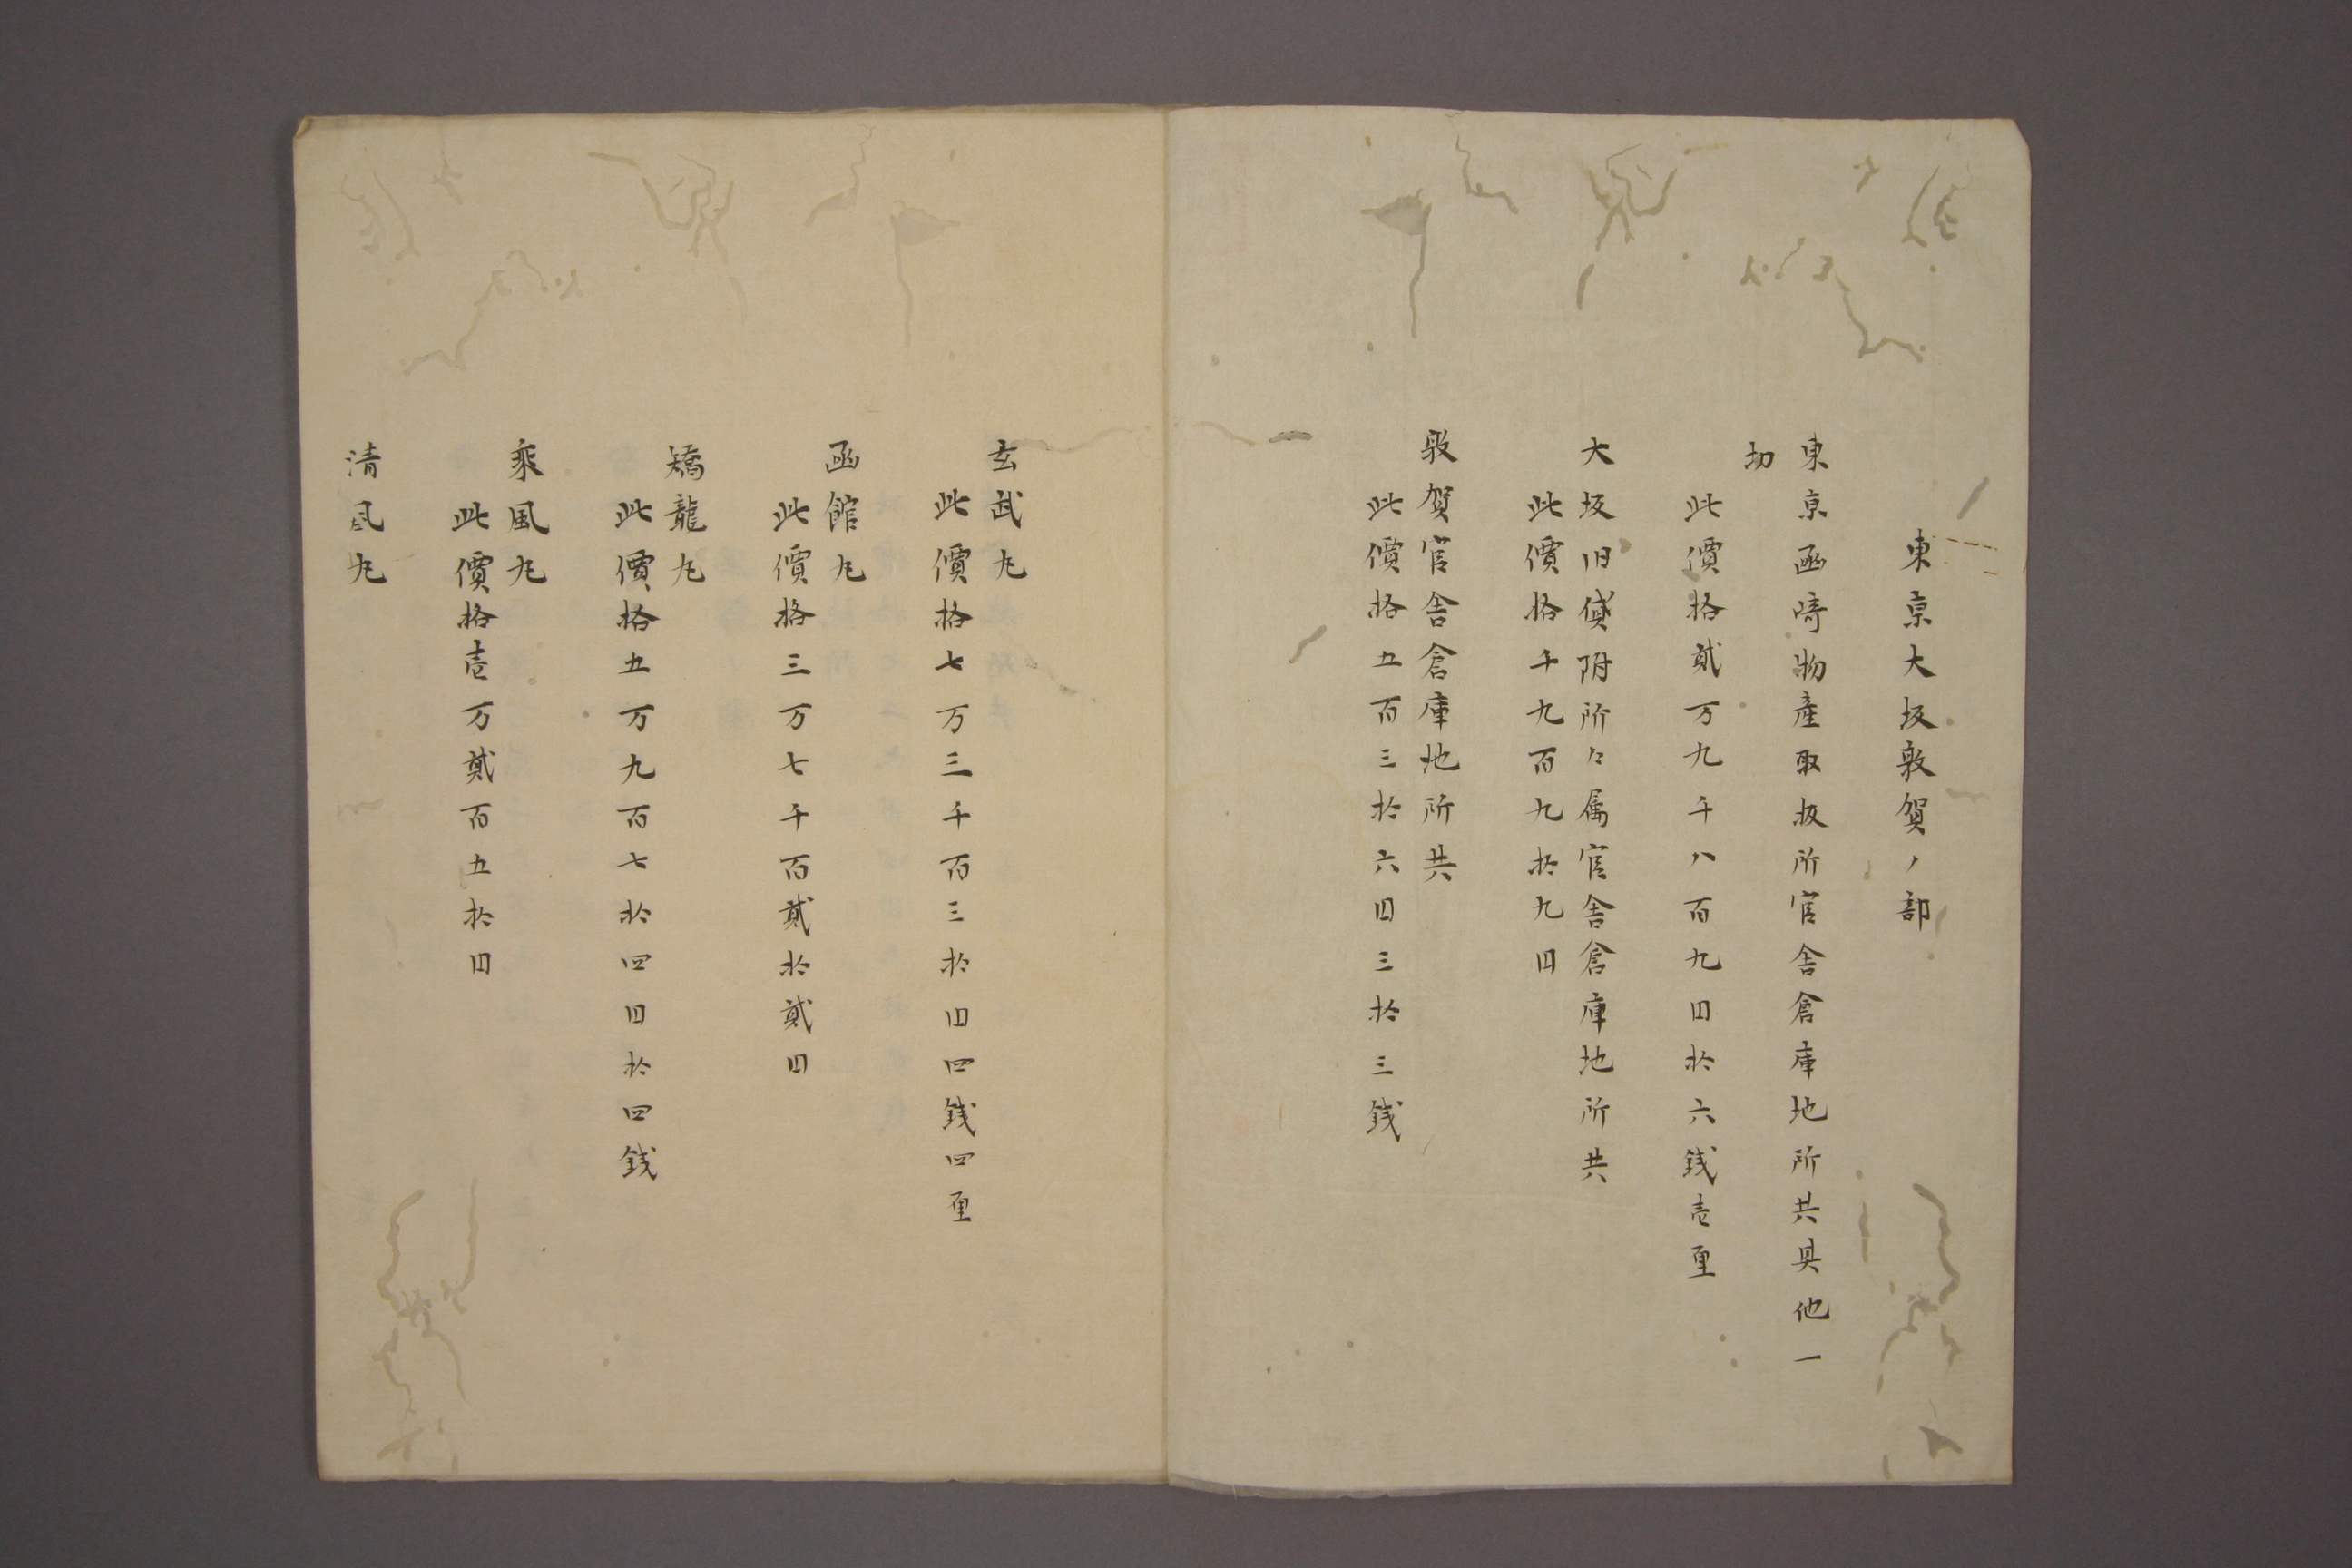 東京大坂敦賀ノ部
東京函崎物産取扱所官舎倉庫地所共其他一
切
此價格貮万九千八百九円拾六銭壱厘
大坂旧貸附所々属官舎倉庫地所共
此價格千九百九拾九円
敦賀官舎倉庫地所共
此價格五百三拾六円三拾三銭
玄武丸
此價格七万三千百三拾円四銭四厘
函館丸
此價格三万七千百貮拾貮円
矯龍丸
此價格五万九百七拾四円拾四銭
乘風丸
此價格壱万貮百五拾円
清風丸